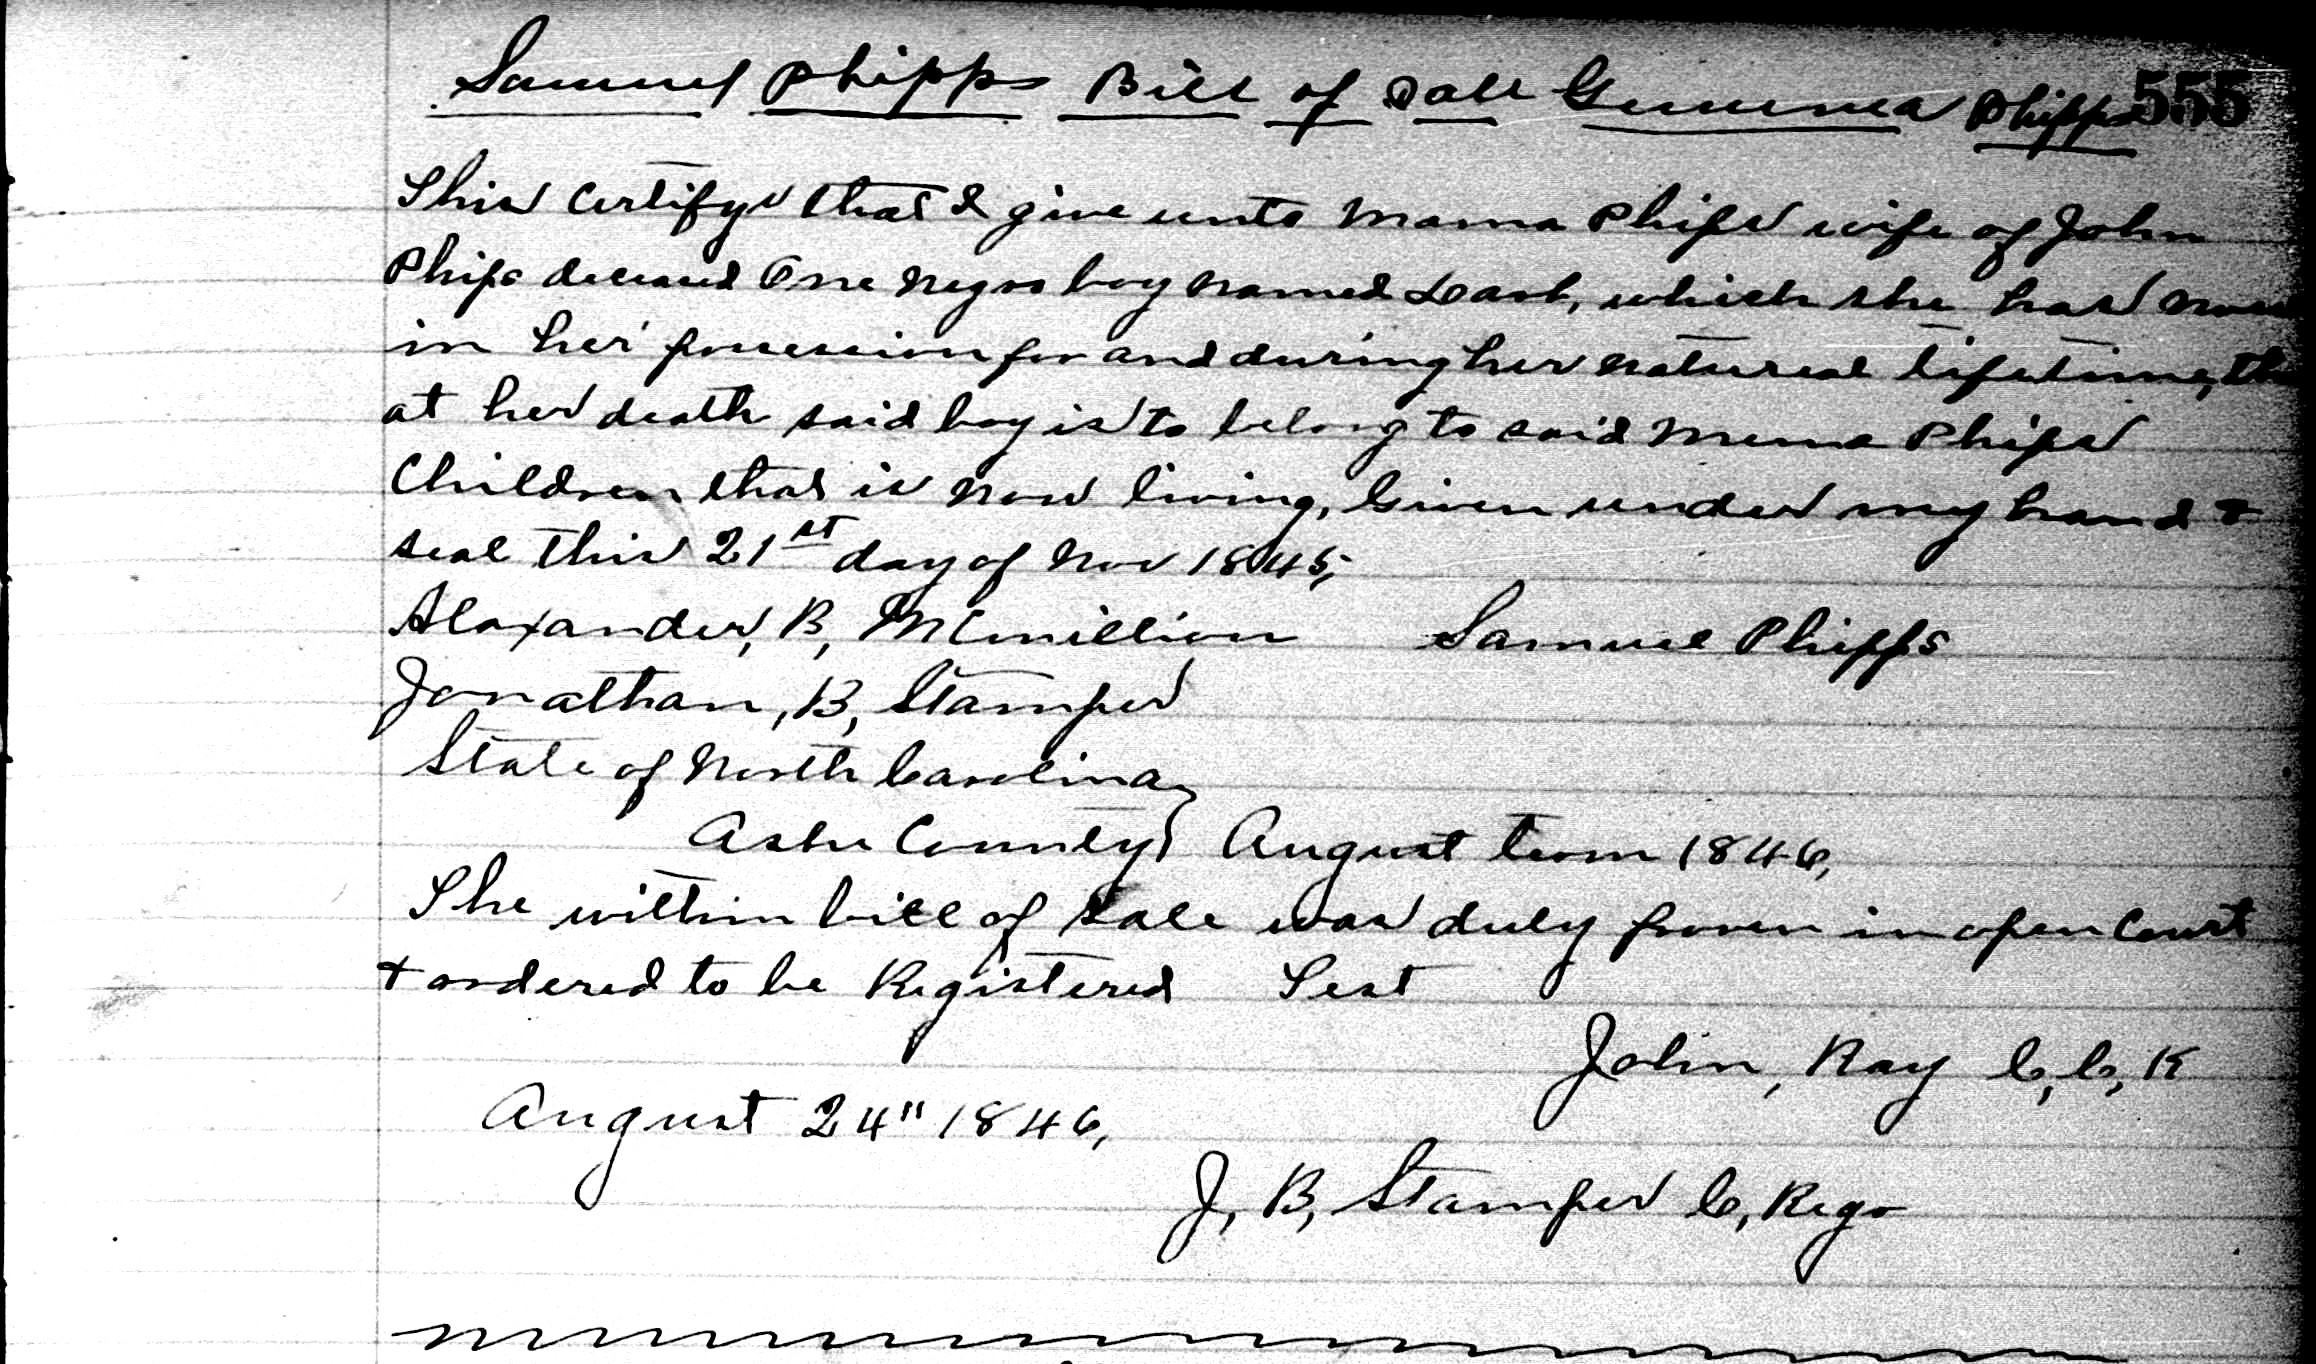 Samuel Phipps Bill of Sale Phipps 555
This certifys that I give unto Mama Phips wife of John
Phips deceased One negro boy named which she has now
in her possession for and during her natureal lifetime, the
at her death said boy is to belong to said Mema Phips
Children that is now living, Given under my hand &
seal this 21st day of Nov 1845,
Alaxander, B, McMillion Samuel Phipps
Jonathan, B, Stamper
State of North Carolina
Ashe County August term 1846,
The within bill of sale was duly proven in open Court
& ordered to be Registered Test
John, Ray C, C, K
August 24" 1846,
J, B, Stamper C, Regr